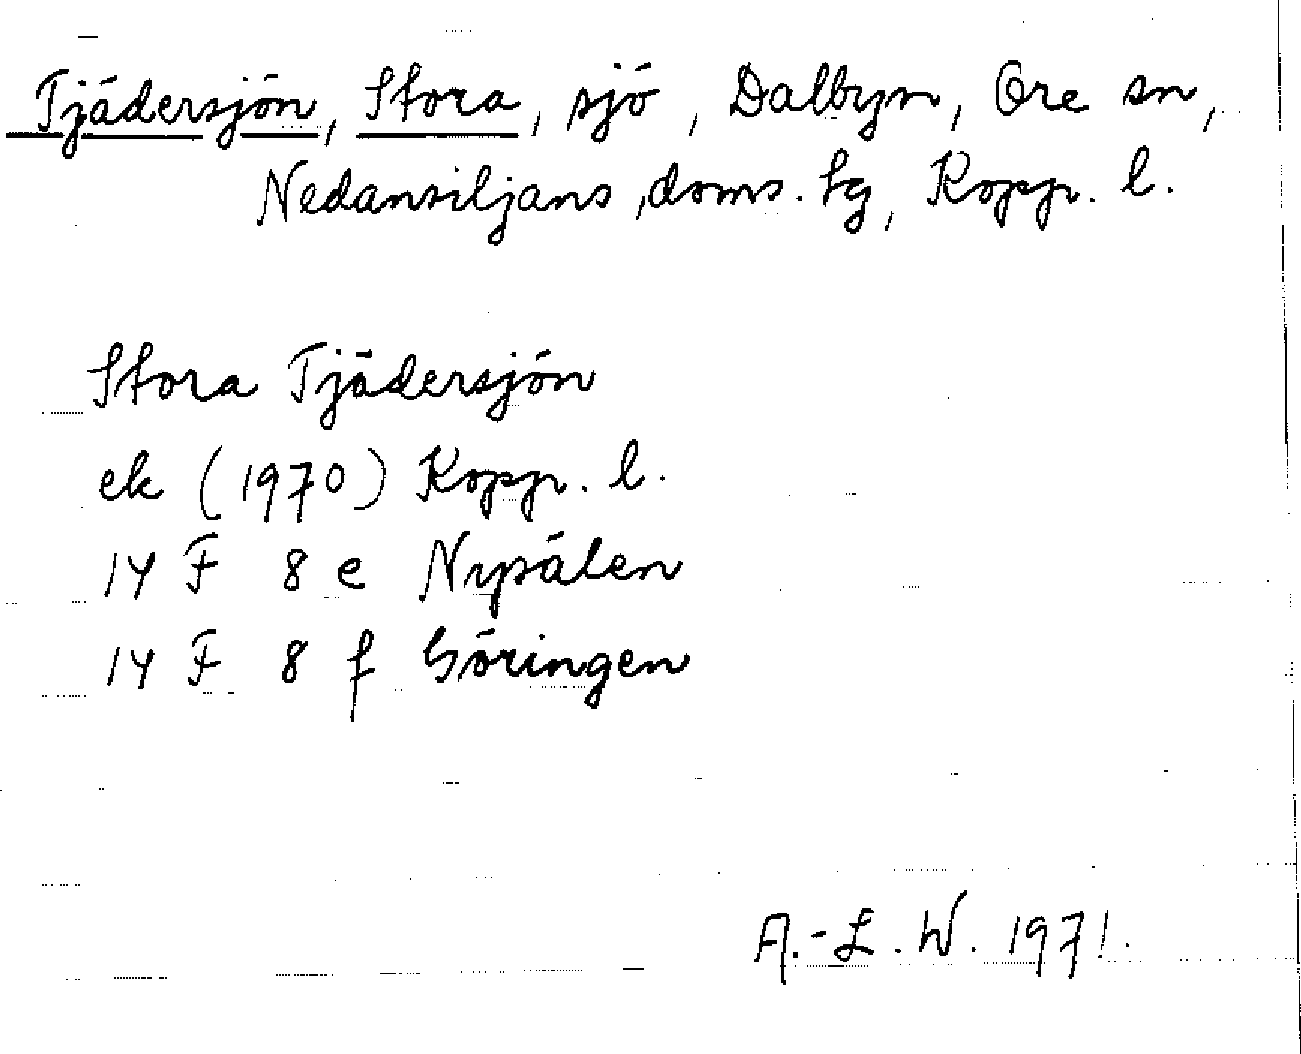 Tjädersjön, Stora, sjö, Dalbyn, Ore sn,
Nedansiljans doms. tg, Kopp. l.
Stora Tjädersjön
ek (1970) Kopp. l.
14 F 8 e Nysälen
14 F 8 f Göringen
A.-L. W. 1971.